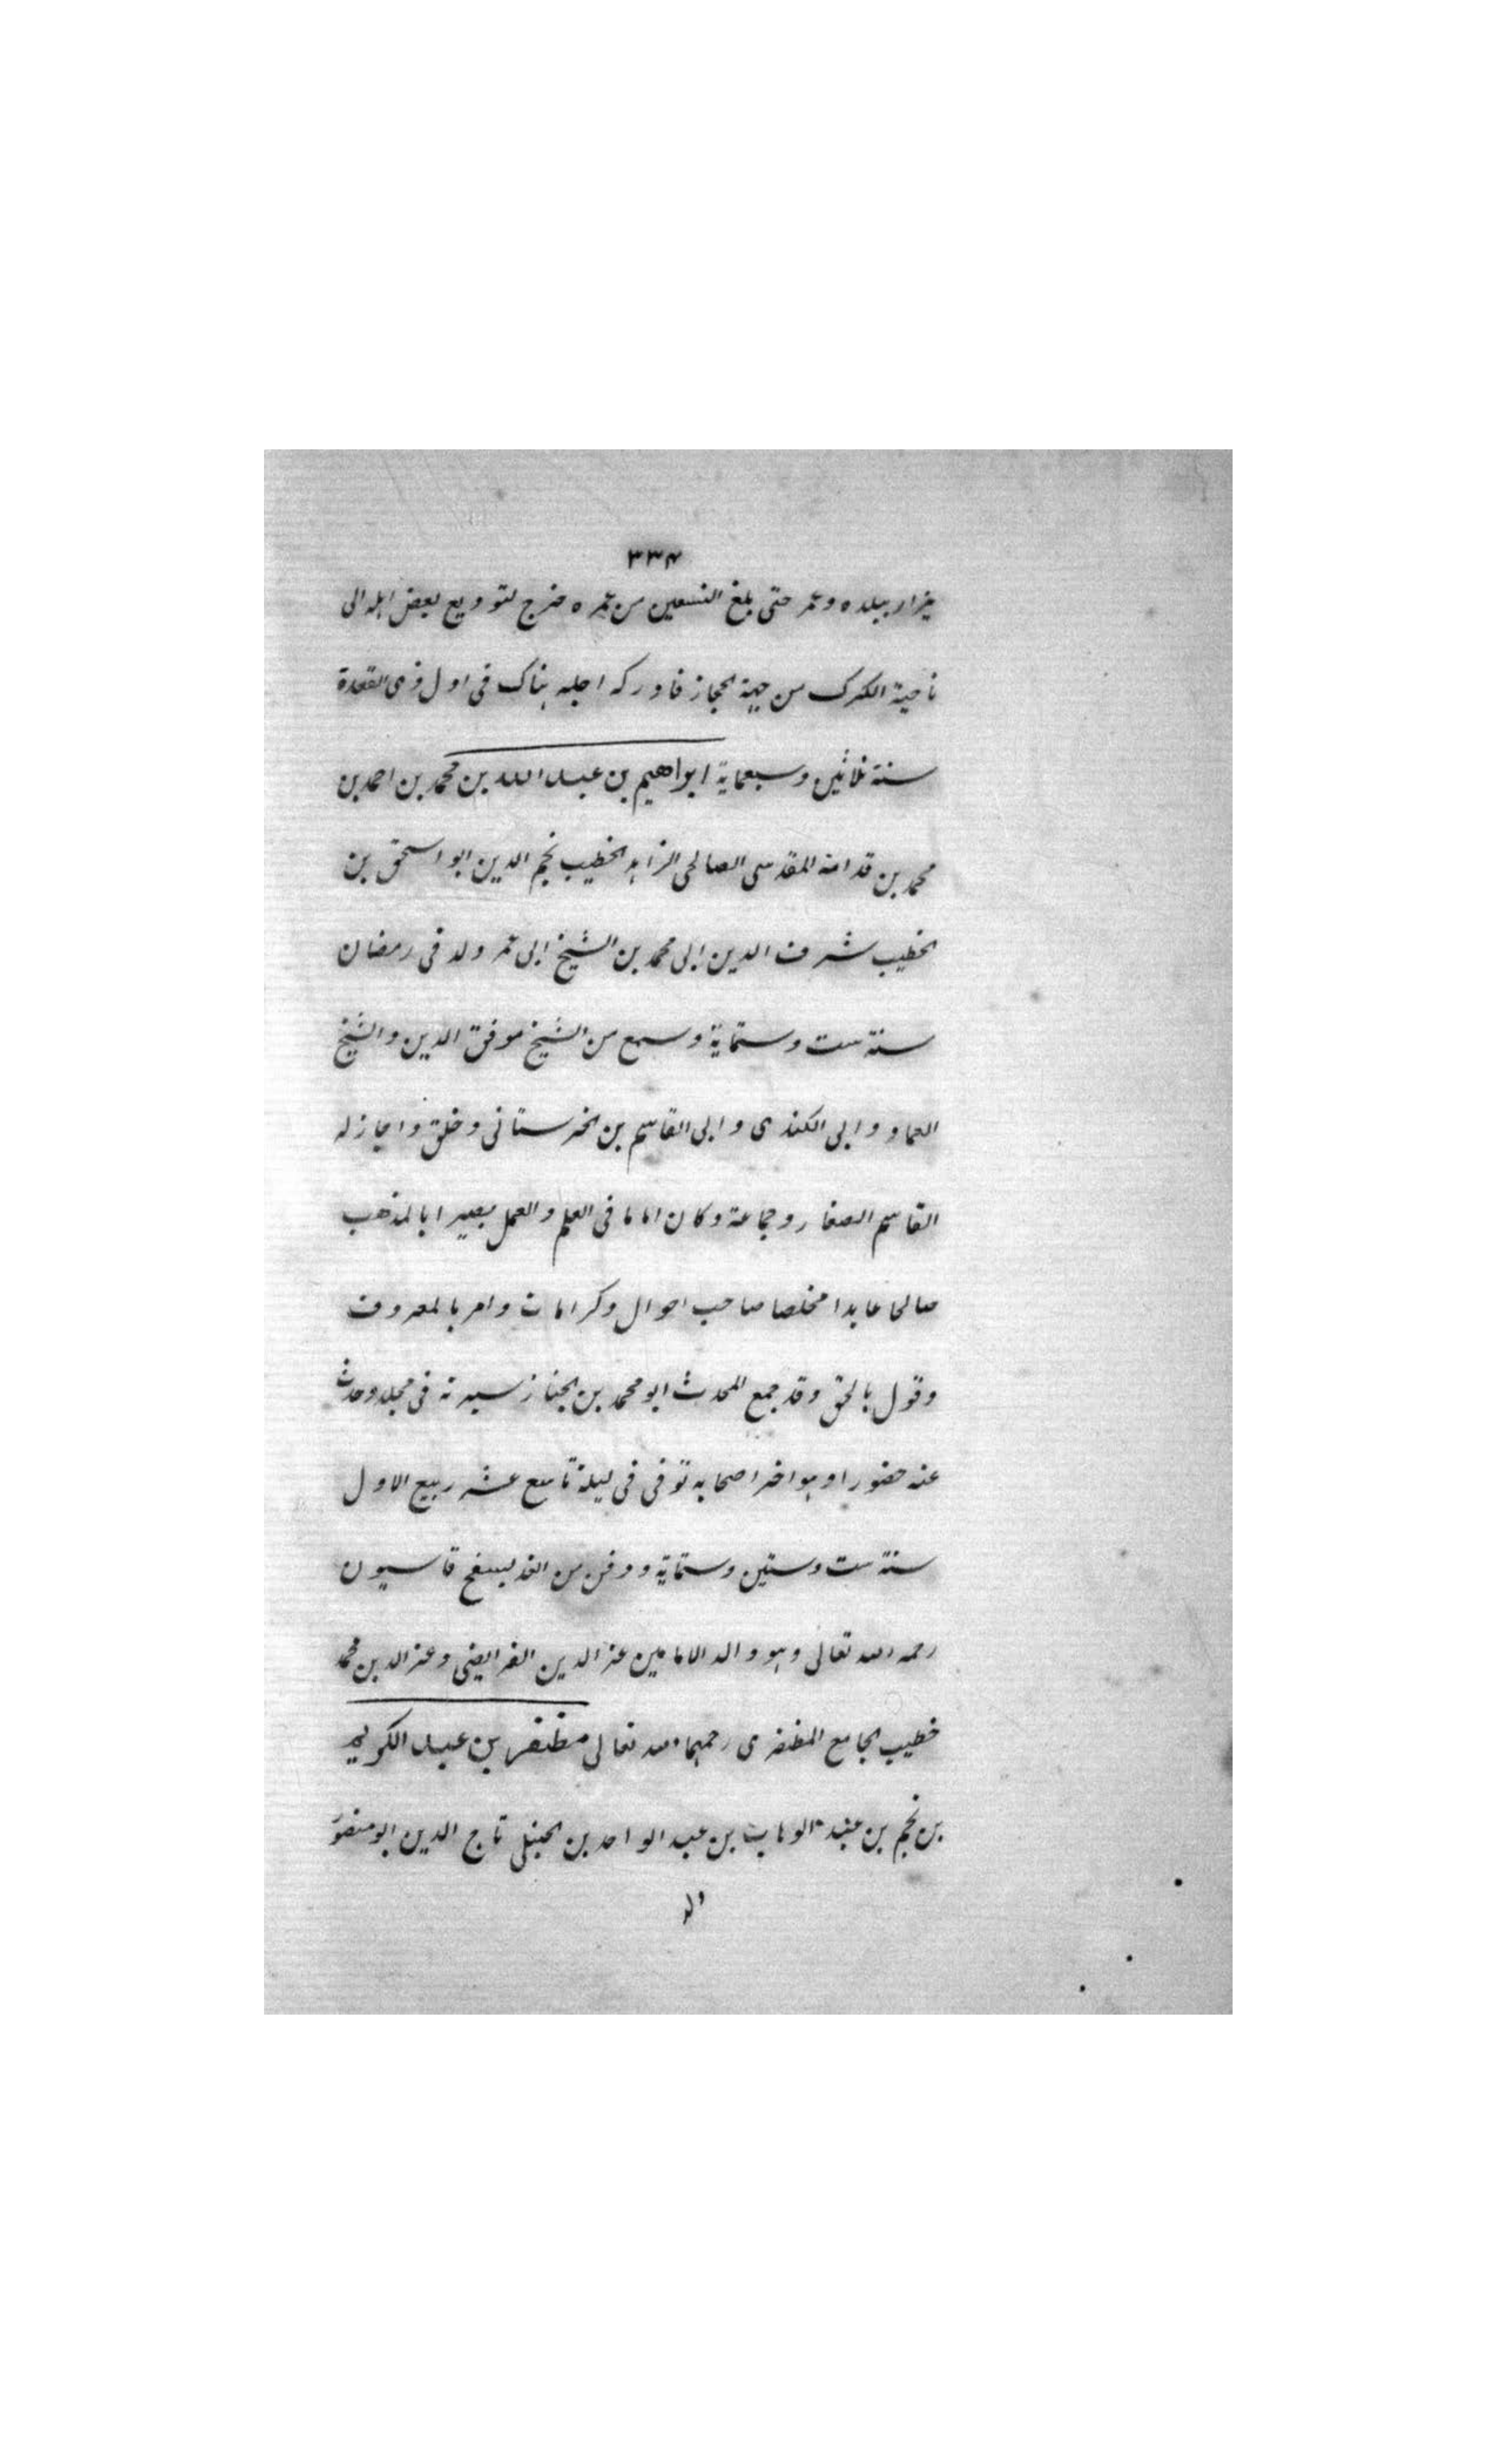 ٣٣٤
يزار ببلده وعمر حتى بلغ التسعين من عمره خرج لتوديع بعض اهله الى
ناحية الكرك من جهة الحجاز فادركه اجله هناك فى اول ذى القعدة
سنة ثلاثين وسبعماية ابراهيم بن عبد الله بن محمد بن احمد بن
محمد بن قدامة المقدسى الصالحى الزاهد الخطيب نجم الدين ابو اسحق بن
الخطيب شرف الدين ابى محمد بن الشيخ ابى عمر ولد فى رمضان
سنة ست وستماية وسمع من الشيخ موفق الدين والشيخ
العماد وابى الكندى وابى القاسم بن الخرستانى وخلق واجاز له
القاسم الصفار وجماعة وكان اماما فى العلم والعمل بصيرا بالمذهب
صالحا عابدا مخلصا صاحب احوال وكرامات وامر بالمعروف
وقول بالحق وقد جمع المحدث ابو محمد بن الخباز سيرته فى مجلد وحدث
عنه حضورا وهو اخر اصحابه توفى فى ليلة تاسع عشر ربيع الاول
سنة ست وستين وستماية ودفن من الغد بسفح قاسيون
رحمه الله تعالى وهو والد الامامين عز الدين الفرايضى وعز الدين محمد
خطيب الجامع المظفرى رحمهما الله تعالى مظفر بن عبد الكريم
بن نجم بن عبد الوهاب بن عبد الواحد بن الحنبلى تاج الدين ابو منصور
الد